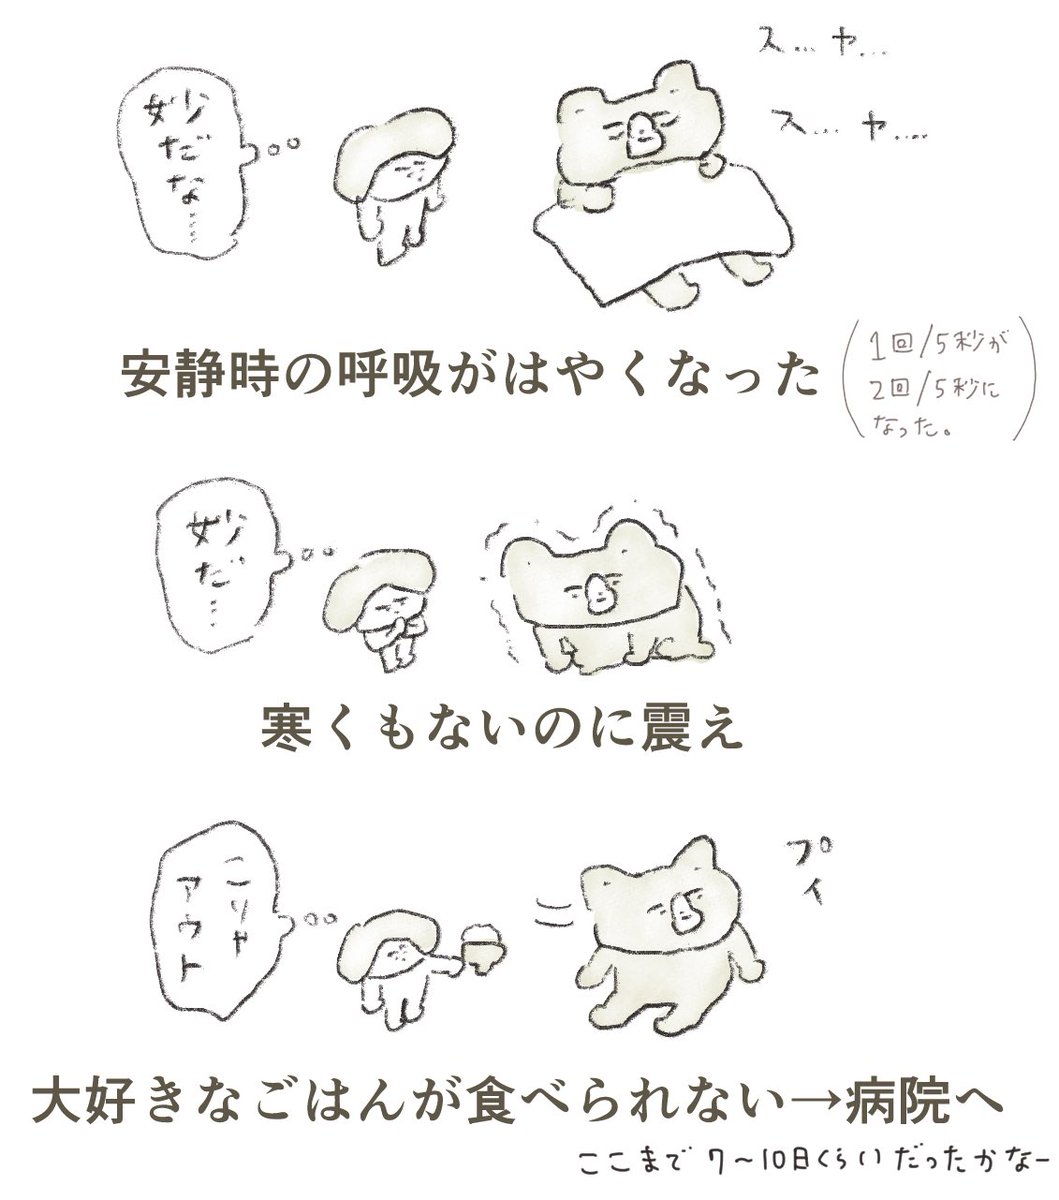 ス…ヤ…
ス…ヤ……
妙だな……
安静時の呼吸がはやくなった
1回/5秒が
2回/5秒に
なった。
妙だ…
寒くもないのに震え
こりゃ
アウト
プイ
大好きなごはんが食べられない→病院へ
ここまで7〜10日くらいだったかなー